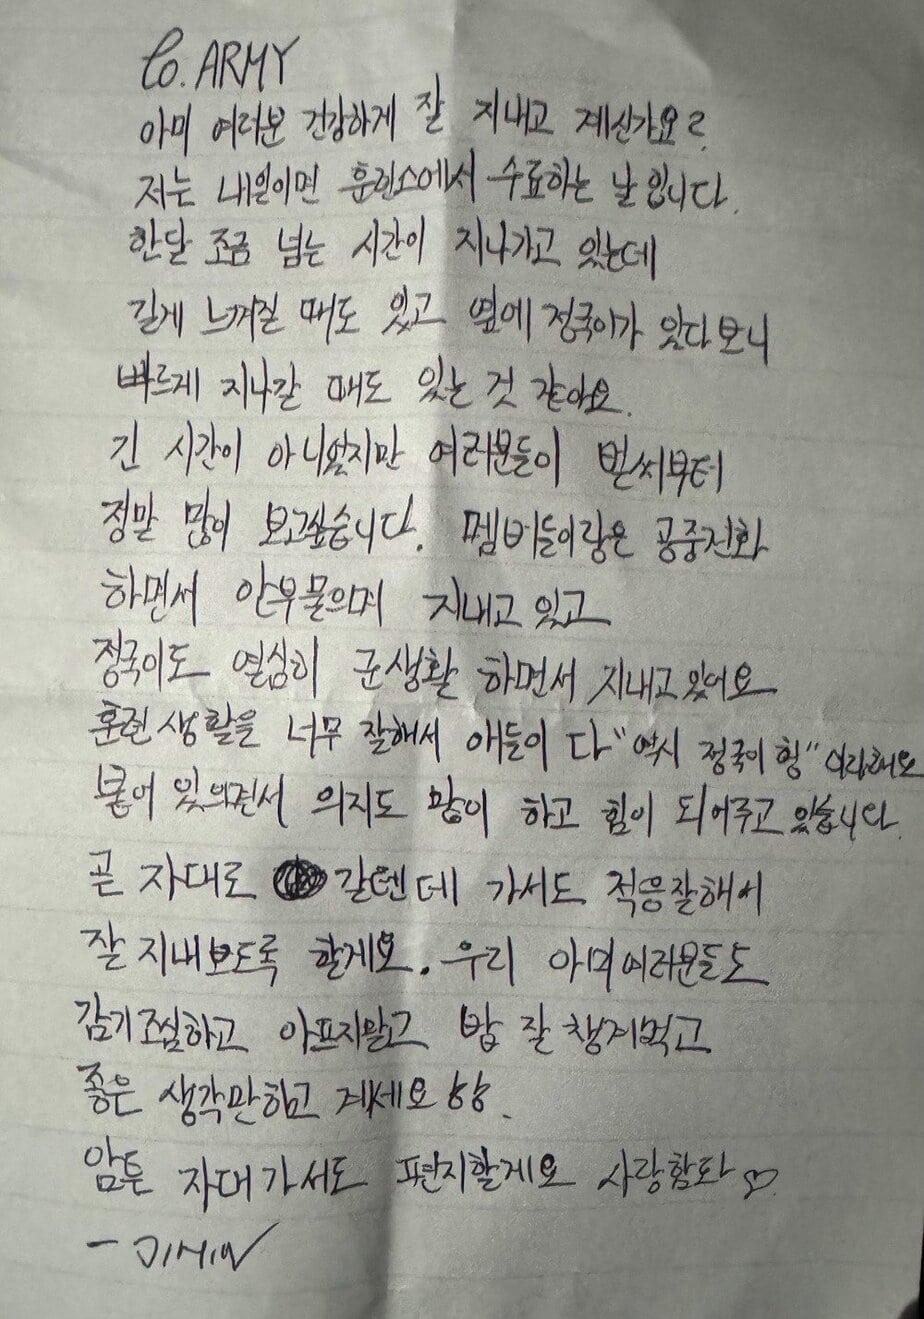 to. ARMY
아미 여러분 건강하게 잘 지내고 계신가요?
저는 내일이면 훈련소에서 수료하는 날입니다.
한달 조금 넘는 시간이 지나가고 있는데
길게 느껴질 때도 있고 옆에 정국이가 있다보니
빠르게 지나갈 때도 있는 것 같아요.
긴 시간이 아니었지만 여러분들이 벌써부터
정말 많이 보고싶습니다. 멤버들이랑은 공중전화
하면서 안부 물으며 지내고 있고
정국이도 열심히 군생활 하면서 지내고 있어요
훈련 생활을 너무 잘해서 애들이 다 "역시 정국이 형" 이라해요
붙어 있으면서 의지도 많이 하고 힘이 되어주고 있습니다
곧 자대로 갈텐데 가서도 적응잘해서
잘 지내보도록 할게요. 우리 아미여러분들도
감기조심하고 아프지말고 밥 잘 챙겨먹고
좋은 생각만하고 계세요 ㅎㅎ.
암튼 자대가서도 편지할게요 사랑함돠 ♡
- JIMIN